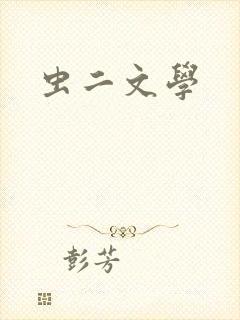 虫二文學
彭芳